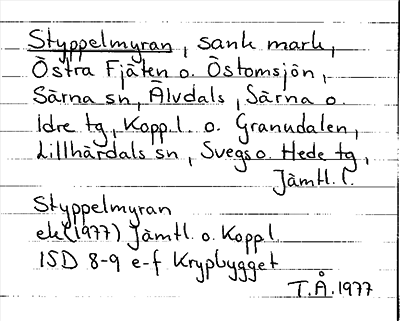 Styppelmyran, sank mark,
Östra Fjäten o. Östomsjön,
Särna sn, Älvdals, Särna o.
Idre tg, Kopp.l. o. Granudalen,
Lillhärdals sn, Svegs o. Hede tg,
Jämtl. l.
Styppelmyran
ek (1977) Jämtl. o. Koppl
ISD 8-9 e-f Krypbygget
T.Å. 1977